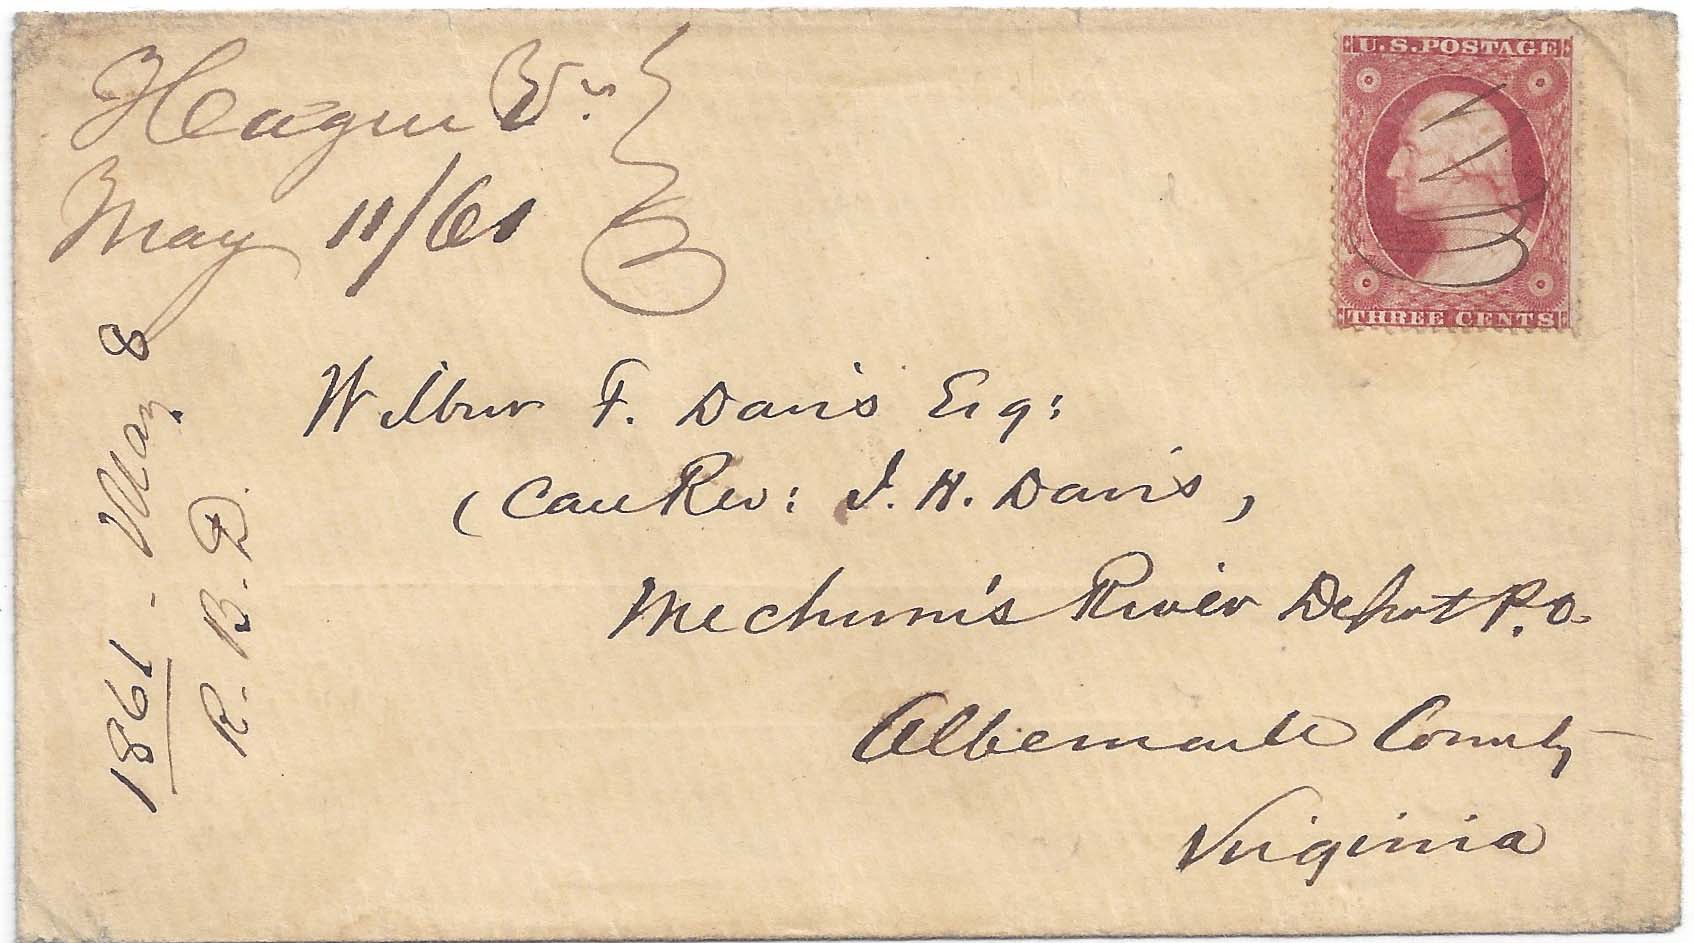 Hague Va.
May 11/61
U.S. POSTAGE
THREE CENTS
1861 - May 8
R. B. D.
Wilbur F. Davis Esq:
(Care Rev: J. H. Davis,
Mechum's River Depot P.O.
Albemarle County
Virginia